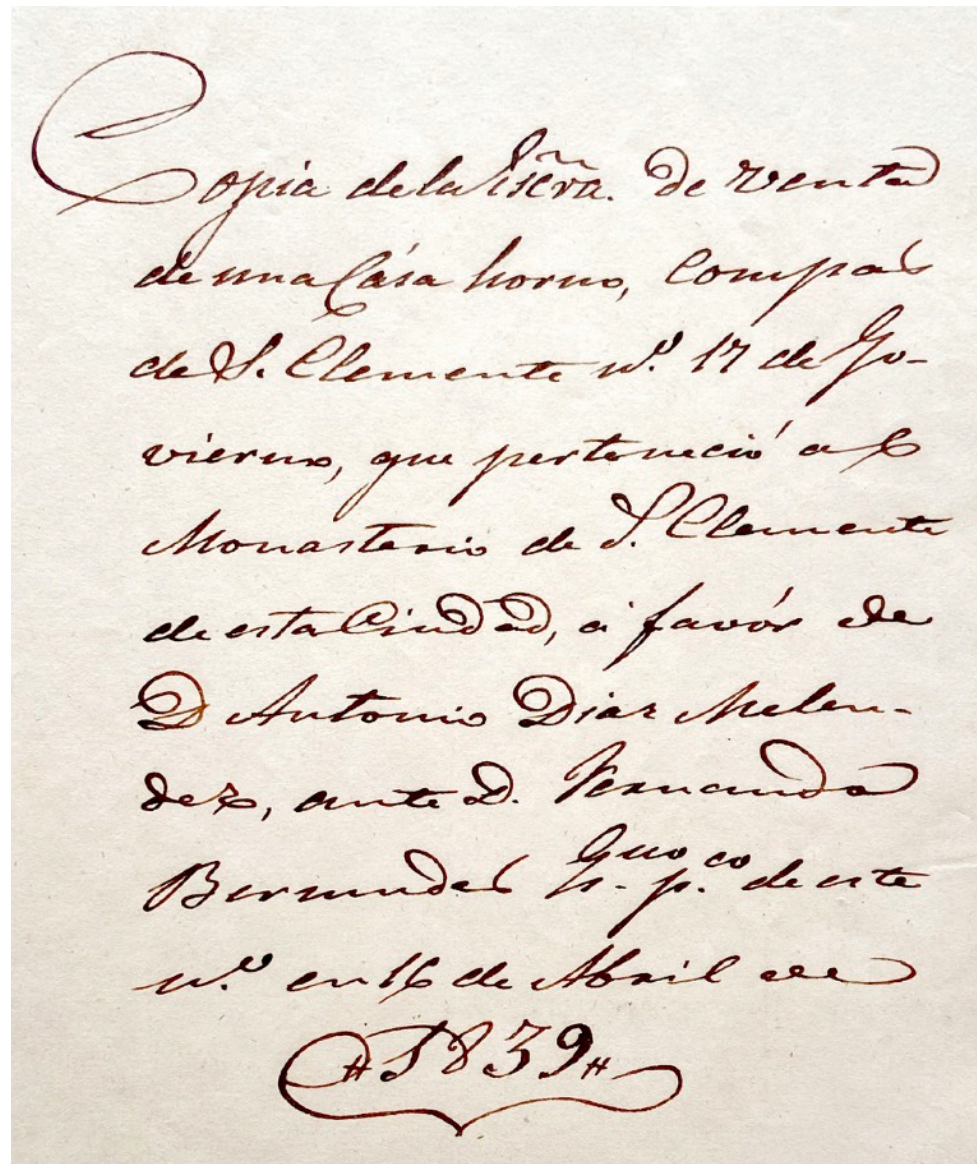 Copia de la Escra. de venta
de una Casa horno, Compas
de S. Clemente nº. 17 de Go-
vierno, que perteneció al
Monasterio de S. Clemente
de esta Ciudad, á favór de
D Antonio Diaz Melen-
dez, ante D. Fernando
Bermudes pco. de este
nº. en 16 de Abril de
"1839"